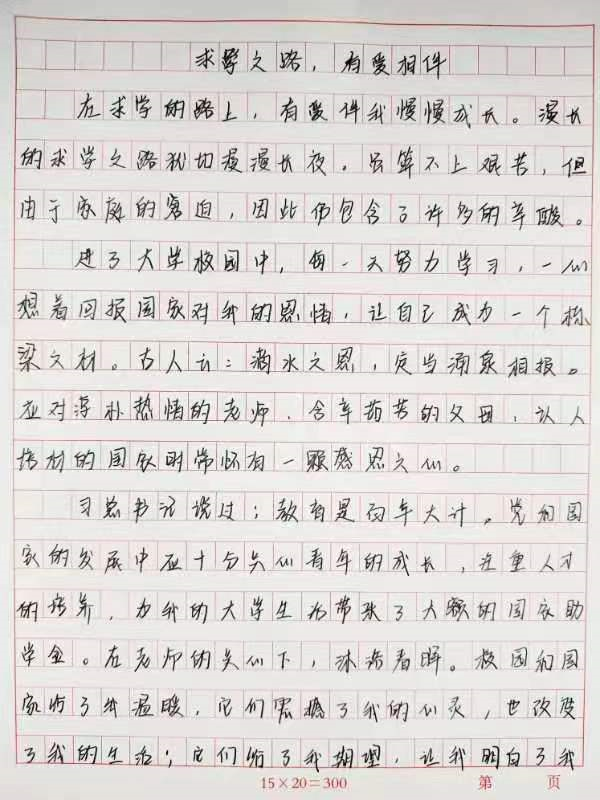 求学之路，有爱相伴
在求学的路上，有爱伴我慢慢成长。漫长
的求学之路犹如漫漫长夜，虽算不上艰苦，但
由于家庭的窘迫，因此仍包含了许多的辛酸。
进了大学校园中，每一天努力学习，一心
想着回报国家对我的恩情，让自己成为一个栋
梁之材。古人云：滴水之恩，定当涌泉相报。
应对淳朴热情的老师，含辛茹苦的父母，以人
培材的国家时常怀有一颗感恩之心。
习总书记说过；教育是百年大计。党和国
家的发展中应十分关心青年的成长，注重人才
的培养，为我的大学生活带来了大额的国家助
学金。在老师的关心下，沐浴春晖。校园和国
家给了我温暖，它们震撼了我的心灵，也改变
了我的生活；它们给了我期望，让我明白了我
15×20=300 第 页